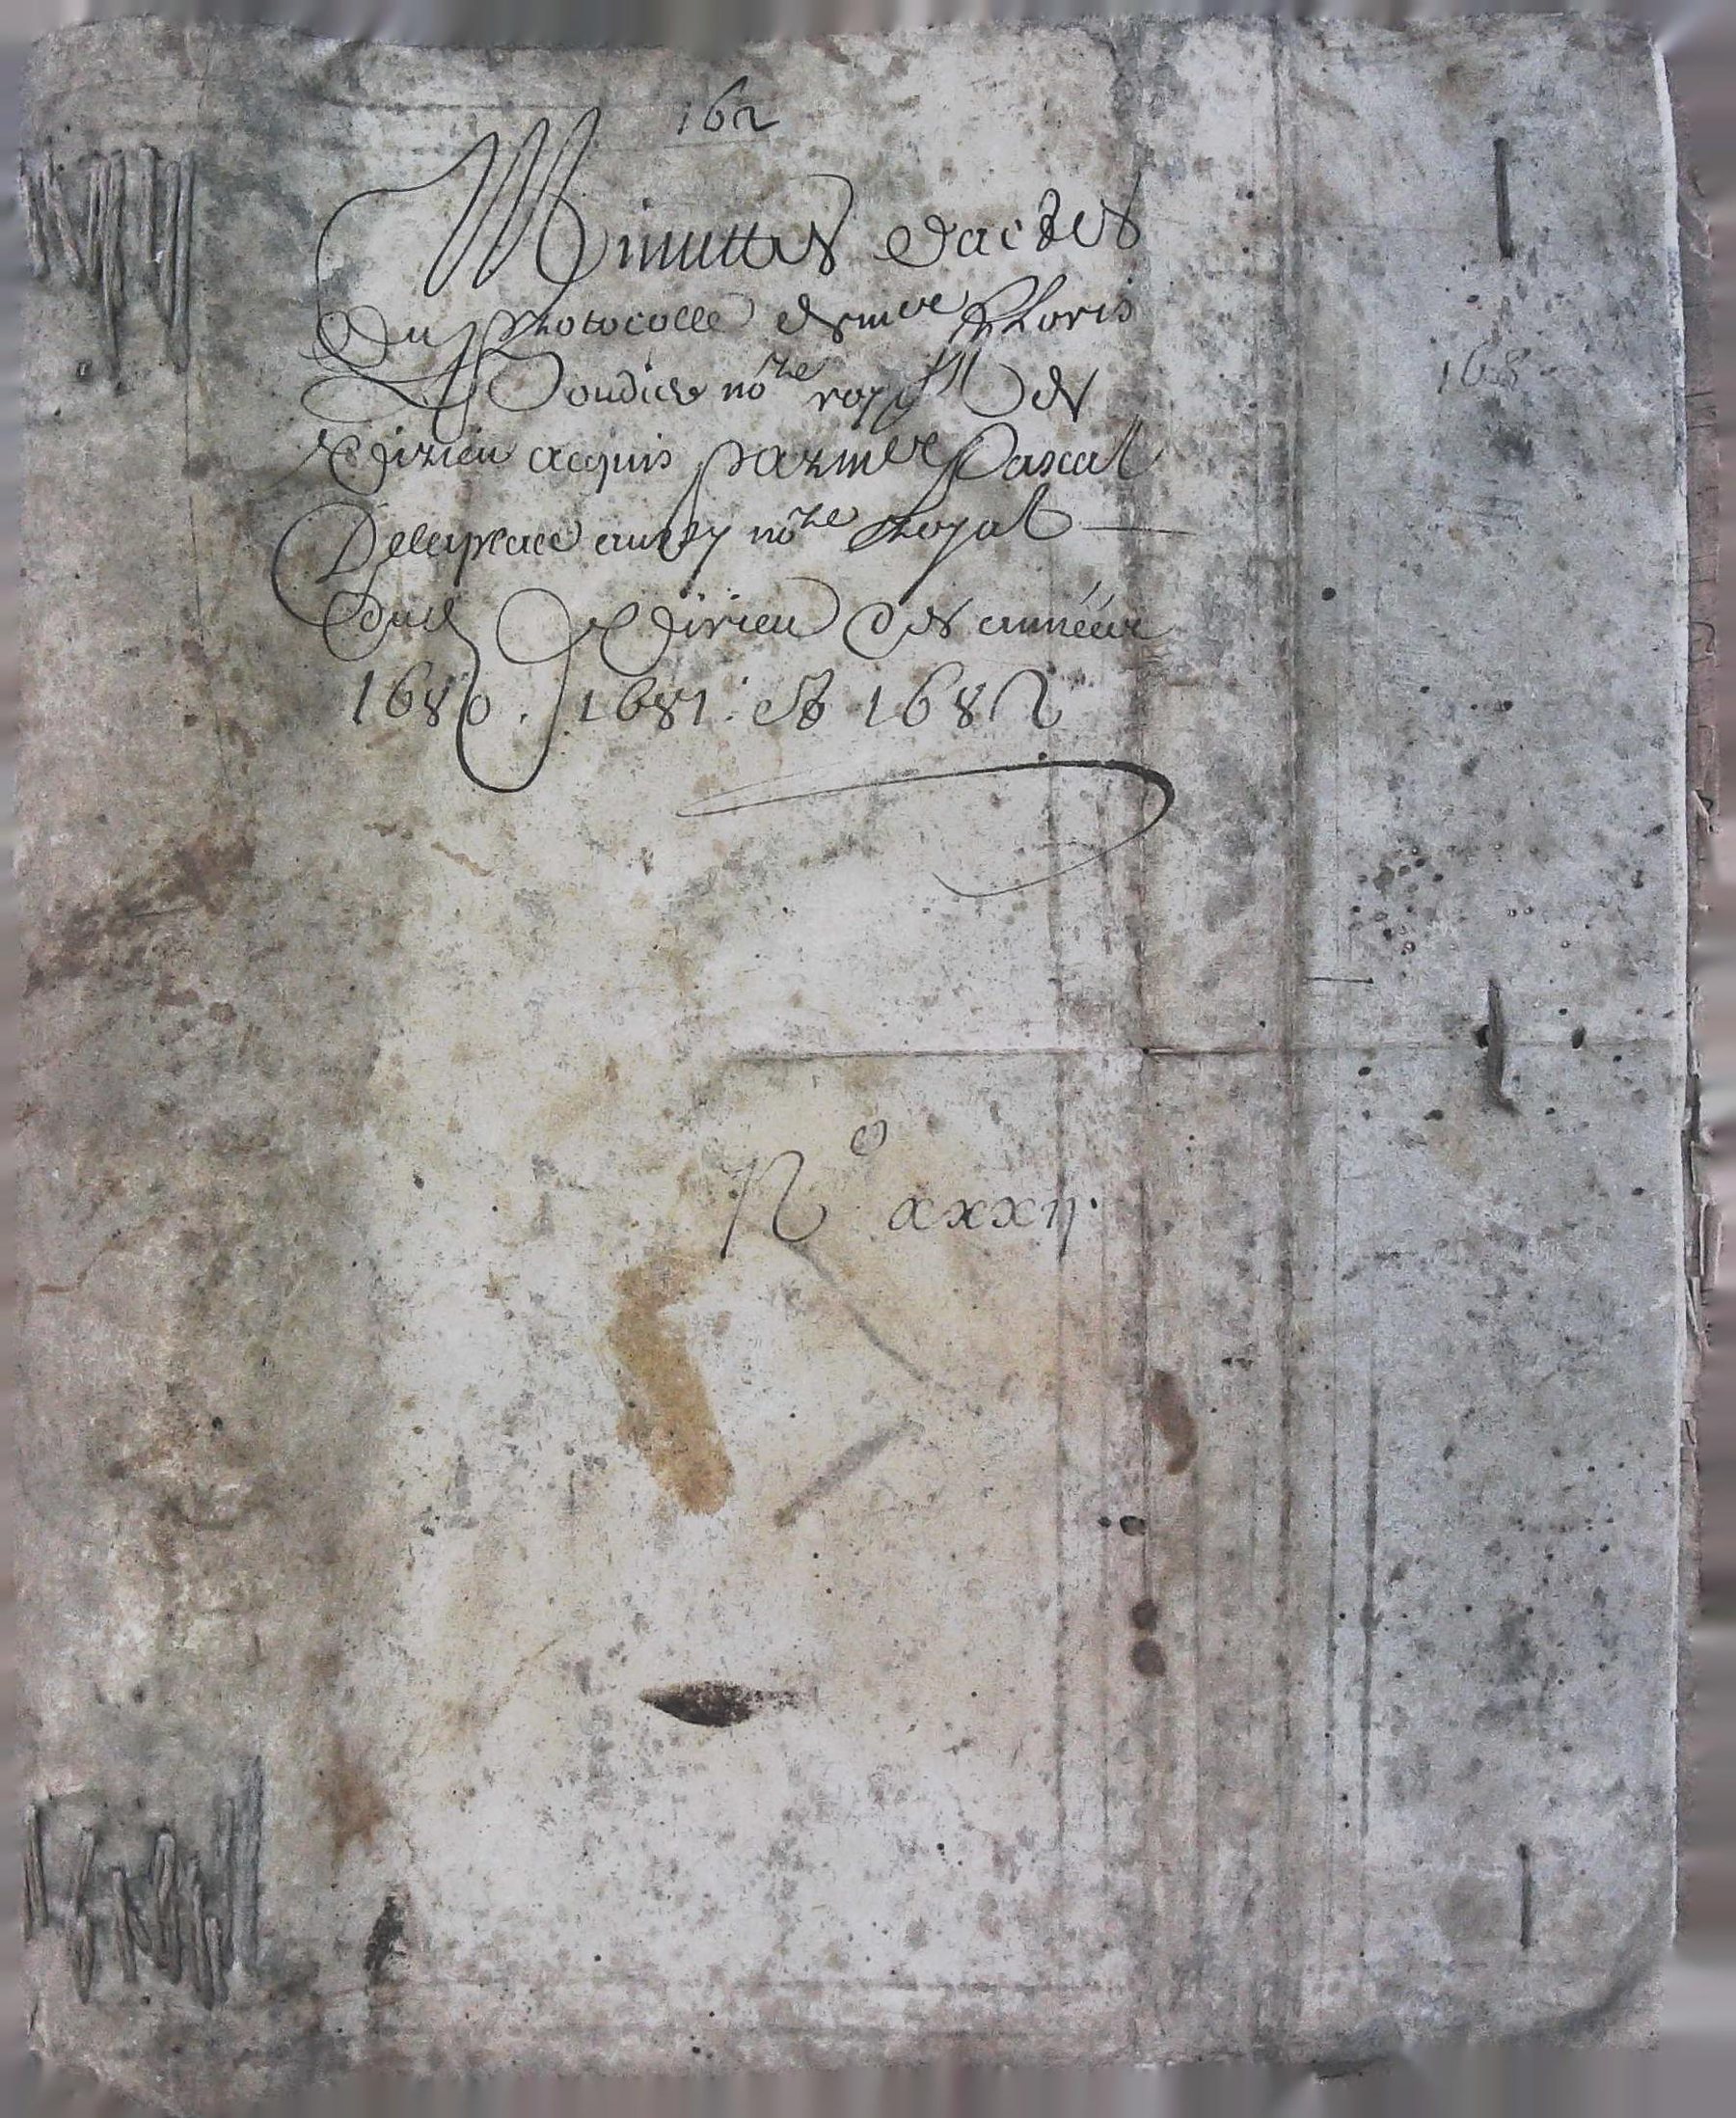 162
Minuttes d'actes
du prothocolle de me Floris
Boudier nore royal de
Virieu acquis par me Pascal
Delaplace aussy nore Royal
dud Virieu des années
1680. 1681. et 1682
168
No xxxij.